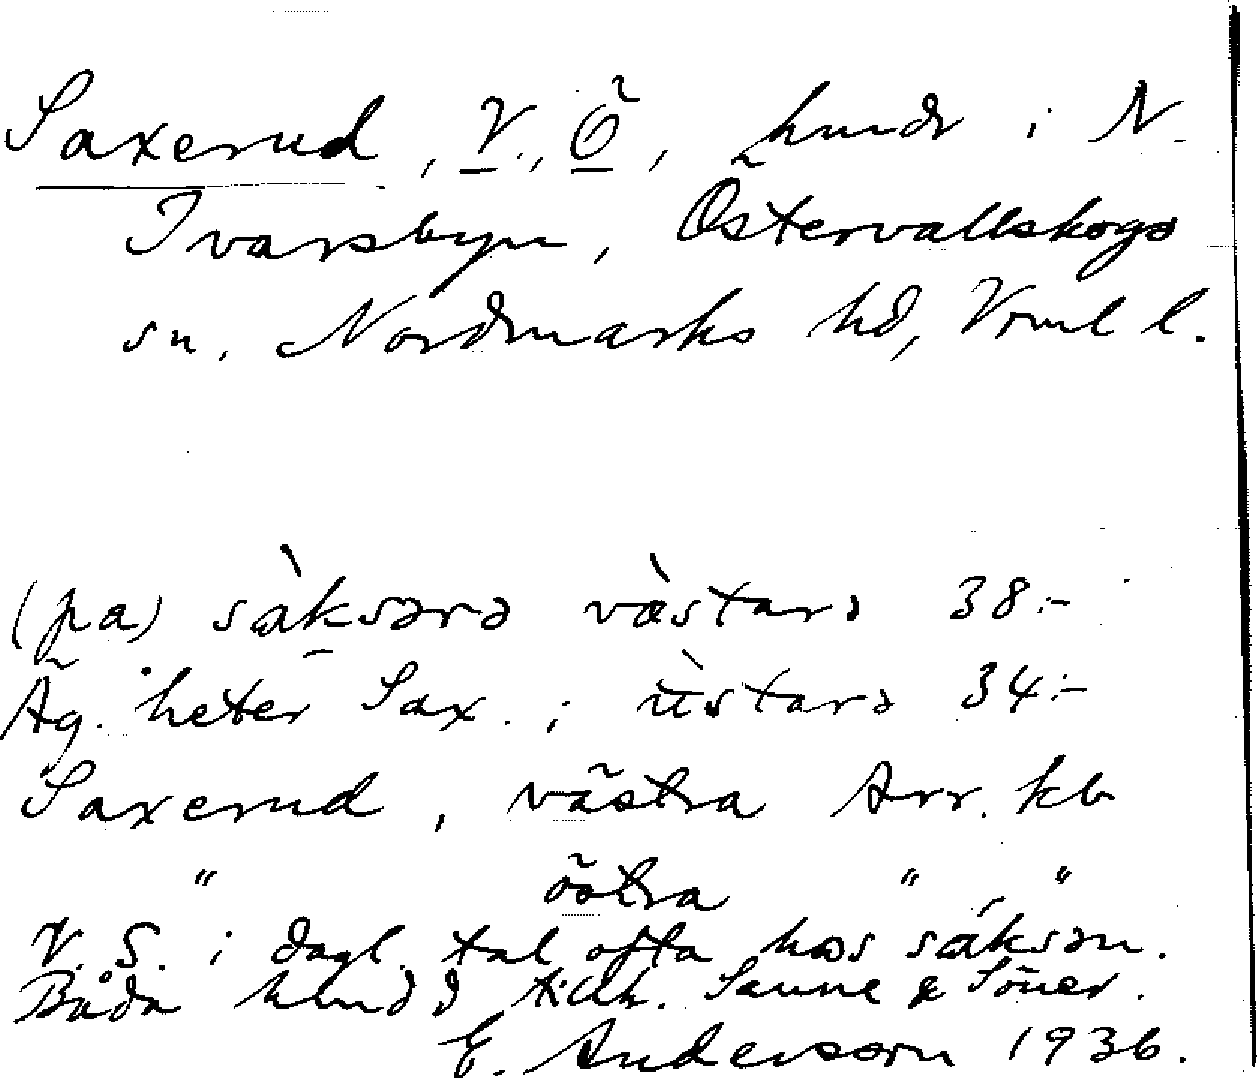 Saxerud, V., Ö, hmdr i N.
Ivarsbyn, Östervallskogs
sn. Nordmarks hd, Vrml l.
(pa) sàksərə væ̀stərə 38:-
Äg. heter Sax. ; ùstərə 34:-
Saxerud, västra Arr. kb
" östra " "
V. S. i dagl. tal ofta hos sáksən.
Båda hmdd tillh. Sanne & Söner.
E. Anderson 1936.